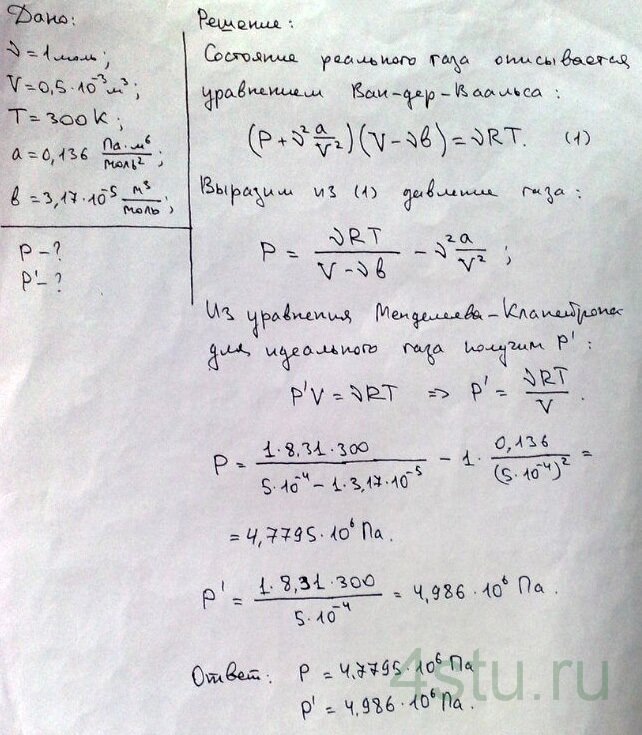 Дано:
ν = 1 моль;
V = 0,5·10⁻³ м³;
T = 300 К;
a = 0,136 Па·м⁶/моль²;
в = 3,17·10⁻⁵ м³/моль;
P - ?
P' - ?
Решение:
Состояние реального газа описывается
уравнением Ван-дер-Ваальса:
(P + ν² a/V²)(V - νв) = νRT. (1)
Выразим из (1) давление газа:
P = νRT/(V - νв) - ν² a/V²;
Из уравнения Менделеева-Клапейрона
для идеального газа получим P':
P'V = νRT => P' = νRT/V.
P = 1·8,31·300/(5·10⁻⁴ - 1·3,17·10⁻⁵) - 1· 0,136/(5·10⁻⁴)² =
= 4,7795·10⁶ Па.
P' = 1·8,31·300/5·10⁻⁴ = 4,986·10⁶ Па.
Ответ: P = 4,7795·10⁶ Па
P' = 4,986·10⁶ Па.
4stu.ru